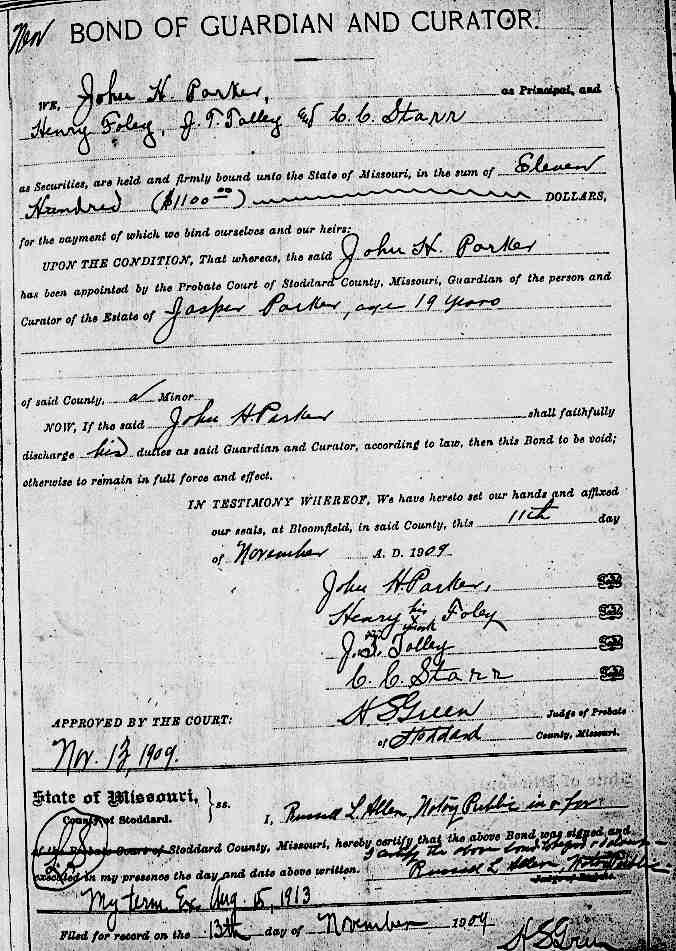 Nov BOND OF GUARDIAN AND CURATOR.
WE, John H. Parker, as Principal, and
Henry Foley, J. T. Tolley & C. C. Starr
as Securities, are held and firmly bound unto the State of Missouri, in the sum of Eleven
Hundred ($1100.00) DOLLARS,
for the payment of which we bind ourselves and our heirs:
UPON THE CONDITION, That whereas, the said John H. Parker
has been appointed by the Probate Court of Stoddard County, Missouri, Guardian of the person and
Curator of the Estate of Jasper Parker, age 19 years
of said County, a Minor
NOW, If the said John H. Parker shall faithfully
discharge his duties as said Guardian and Curator, according to law, then this Bond to be void;
otherwise to remain in full force and effect.
IN TESTIMONY WHEREOF, We have hereto set our hands and affixed
our seals, at Bloomfield, in said County, this 11th day
of November A. D. 1909.
John H. Parker, Seal
Henry his x mark Foley Seal
J. T. Tolley Seal
C. C. Starr Seal
APPROVED BY THE COURT: H S Green Judge of Probate
of Stoddard County, Missouri.
Nov. 13, 1909.
State of Missouri, } ss.
County of Stoddard. I, Russell L. Allen, Notary Public in & for
of the Probate Court of Stoddard County, Missouri, hereby certify that the above Bond was signed and
I certify the above bond
executed in my presence the day and date above written. Russell L Allen, Notary Public
Judge of Probate.
L.S.
My term Ex. Aug. 15, 1913
Filed for record on the 13th day of November 1909
H S Green